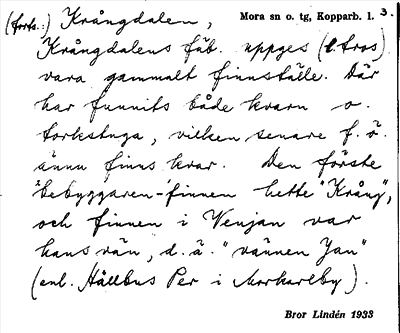 (forts.) Krångdalen, Mora sn o. tg, Kopparb. l. 3.
Krångdalens fäb. uppges (l. tros)
vara gammalt finnställe. Där
har funnits både kvarn o.
torkstuga, vilken senare f. ö.
ännu finns kvar. Den förste
bebyggaren-finnen hette "Krång",
och finnen i Venjan var
hans vän, d. ä. "vännen Jan"
(enl. Hållbus Per i Morkarlby).
Bror Lindén 1933